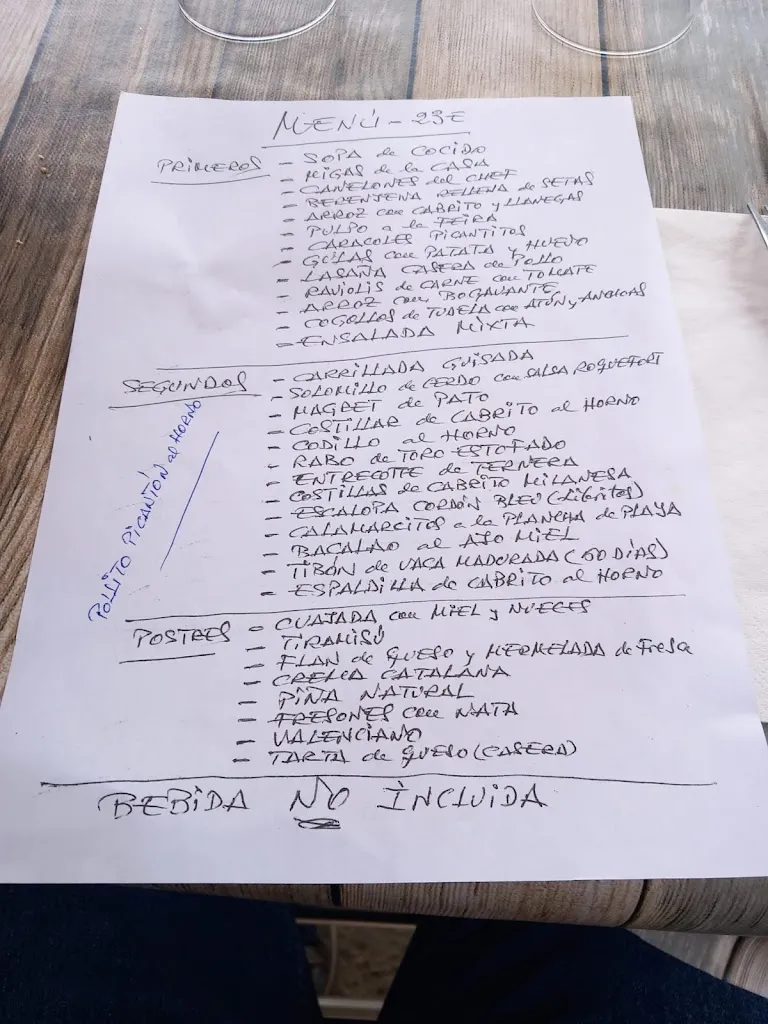 MENÚ - 23€
PRIMEROS - SOPA de COCIDO
- MIGAS de la CASA
- CANELONES del CHEF
- BERENJENA RELLENA de SETAS
- ARROZ con CABRITO y LLANEGAS
- PULPO a la FEIRA
- CARACOLES PICANTITOS
- GULAS con PATATA y HUEVO
- LASAÑA CASERA de POLLO
- RAVIOLIS de CARNE con TOMATE
- ARROZ con BOGAVANTE
- COGOLLOS de TUDELA con ATÚN y ANCHOAS
- ENSALADA MIXTA
SEGUNDOS - CARRILLADA GUISADA
- SOLOMILLO de CERDO con SALSA ROQUEFORT
- MAGRET de PATO
- COSTILLAR de CABRITO al HORNO
- CODILLO al HORNO
- RABO de TORO ESTOFADO
- ENTRECOTTE de TERNERA
- COSTILLAS de CABRITO MILANESA
- ESCALOPA CORDÓN BLEU (Libritos)
- CALAMARCITOS a la PLANCHA de PLAYA
- BACALAO al AJO MIEL
- TIBÓN de VACA MADURADA (60 DÍAS)
- ESPALDILLA de CABRITO al HORNO
POLLITO PICANTÓN al HORNO
POSTRES - CUAJADA con MIEL y NUECES
- TIRAMISÚ
- FLAN de QUESO y MERMELADA de Fresa
- CREMA CATALANA
- PIÑA NATURAL
- FRESONES con NATA
- VALENCIANO
- TARTA de QUESO (CASERA)
BEBIDA NO INCLUIDA